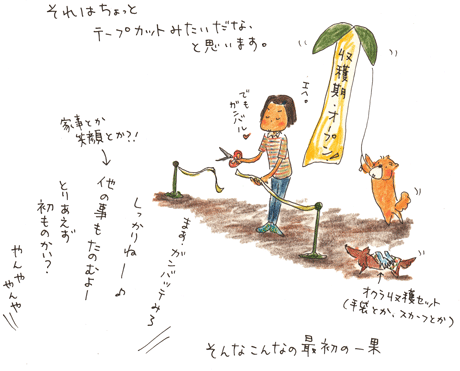 それはちょっと
テープカットみたいだな、
と思います。
収穫期・オープン
エヘ。
でも
ガンバル
家事とか
笑顔とか?!
まあ、ガンバッテみろ
しっかりねー♪
他の事もたのむよー
とりあえず
初ものかい?
やんや
やんや
オクラ収穫セット
(手袋とか、スカーフとか)
そんなこんなの最初の一果